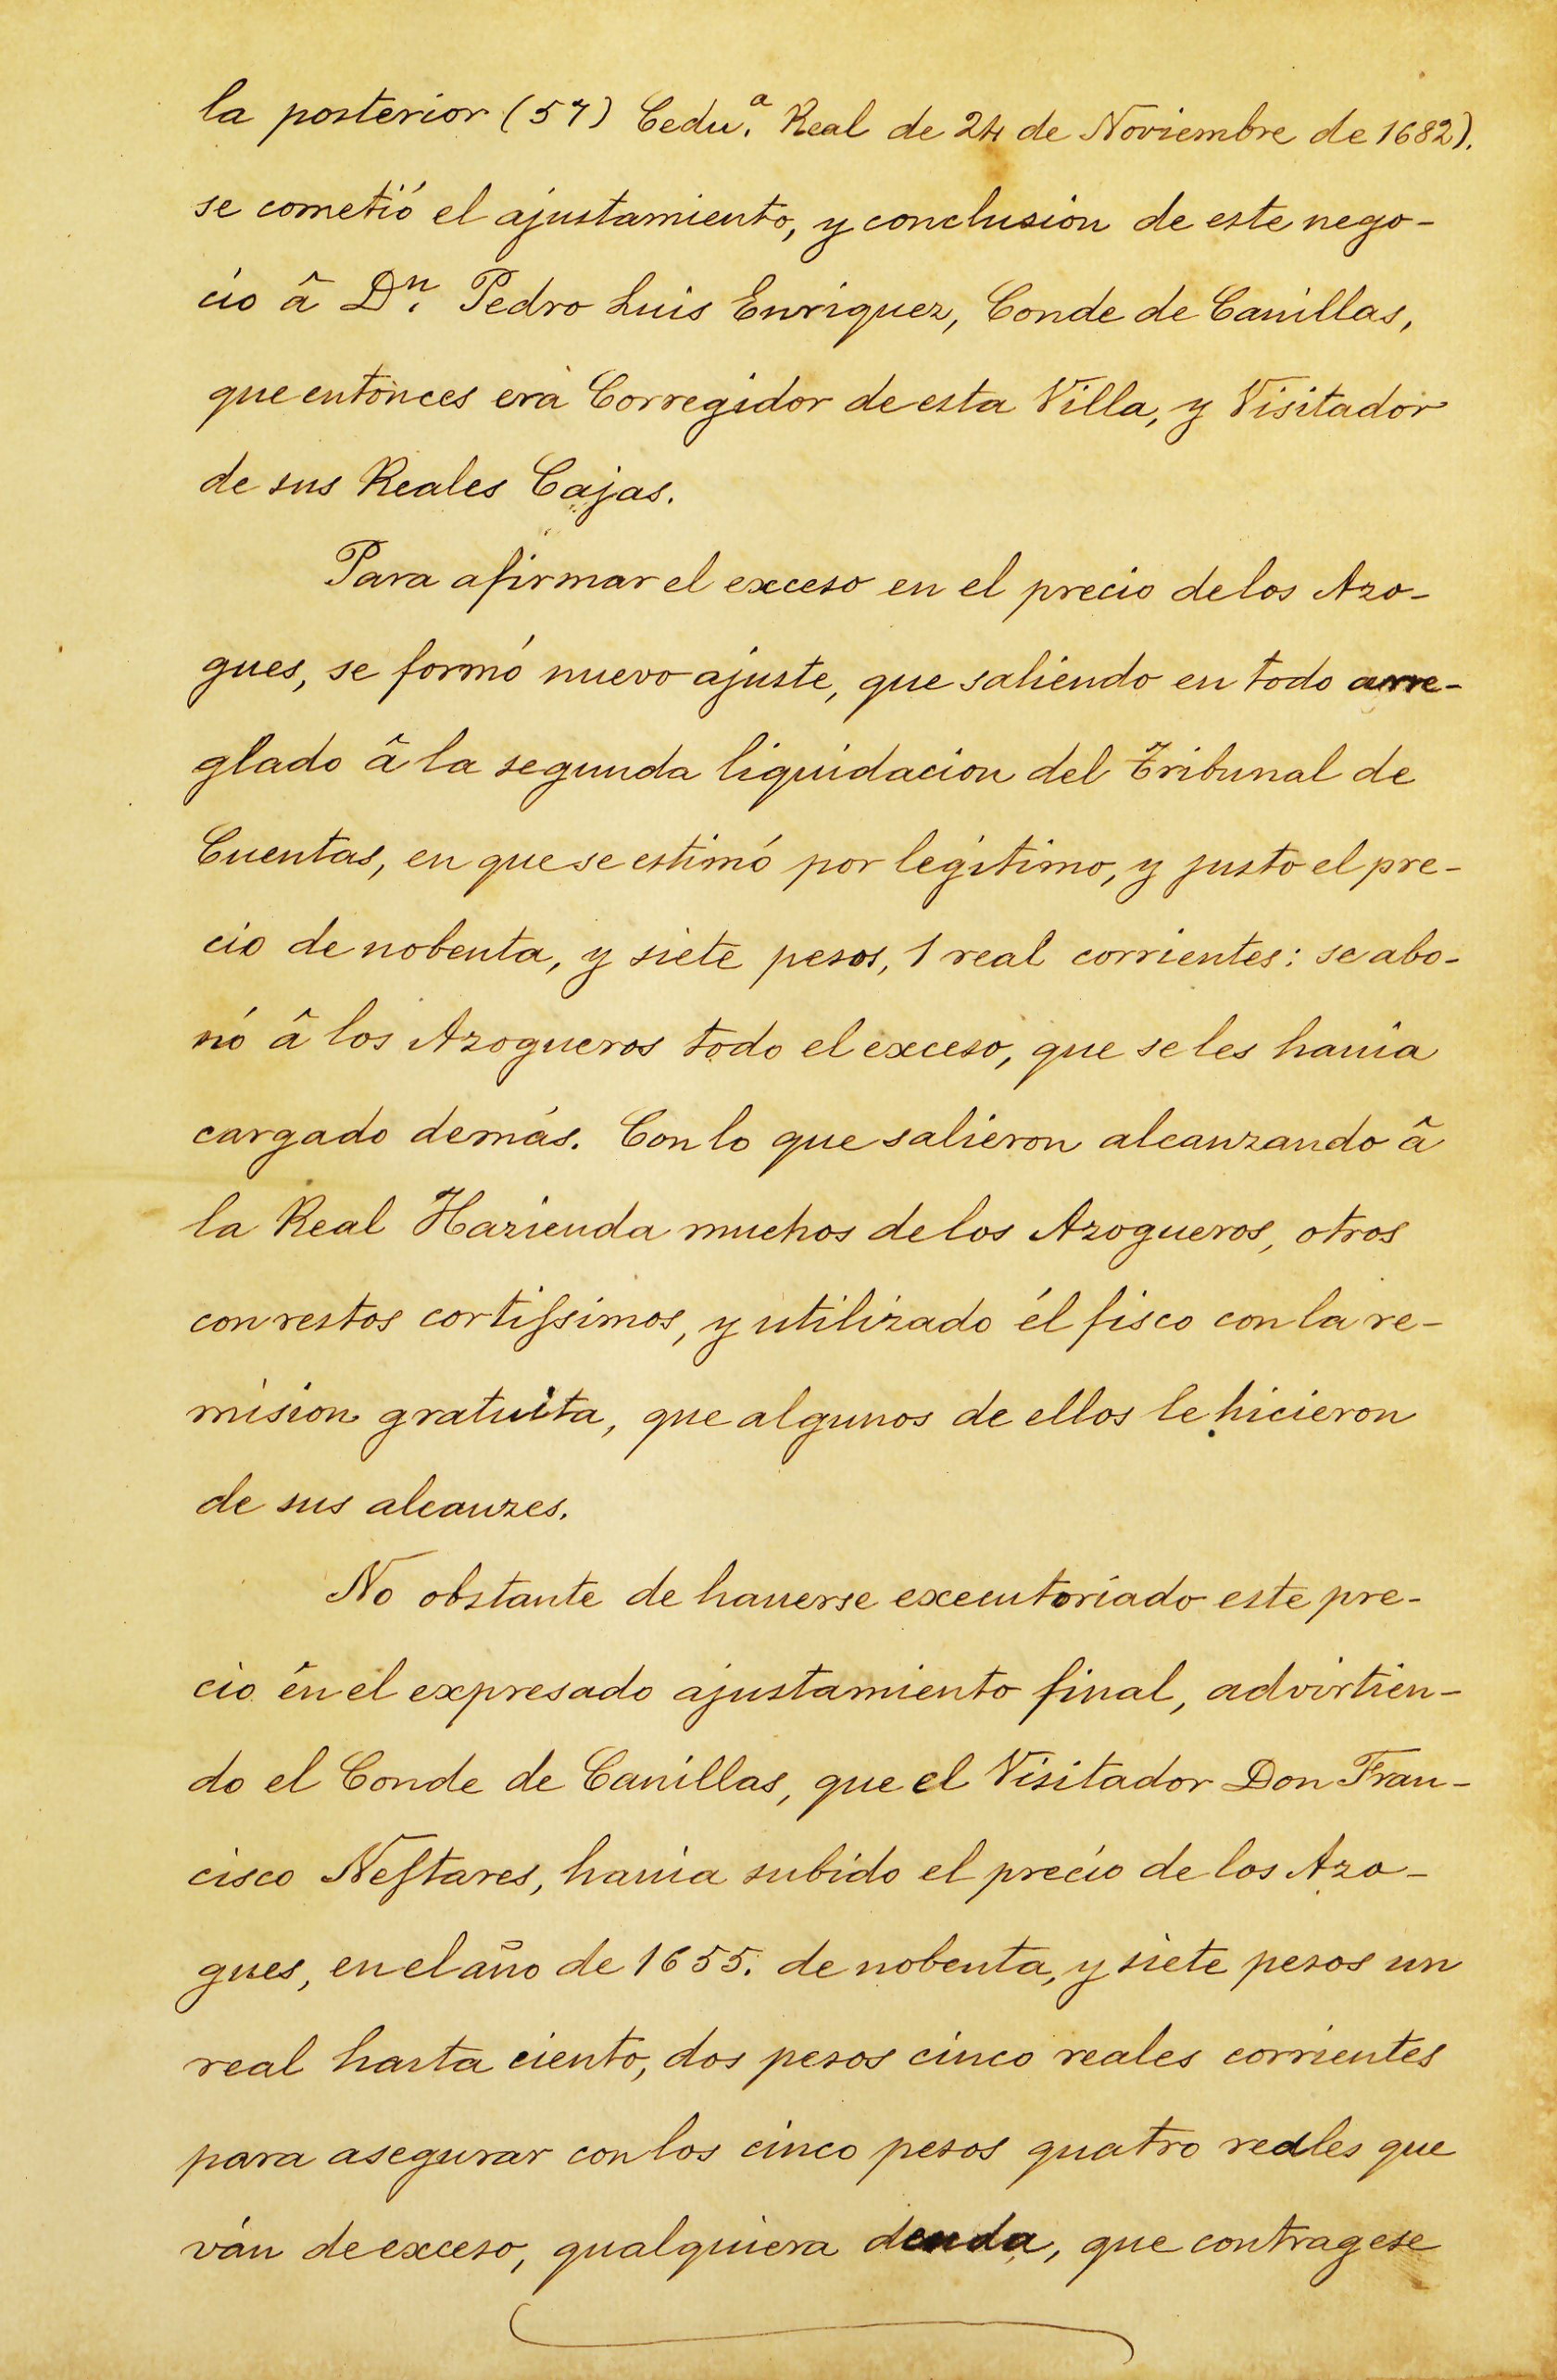 la posterior (57) Cedu.ª Real de 24 de Noviembre de 1682).
se cometió el ajustamiento, y conclusion de este nego-
cio â D.ⁿ Pedro Luis Enriquez, Conde de Canillas,
que entònces erà Corregidor de esta Villa, y Visitador
de sus Reales Cajas.
Para afirmar el exceso en el precio de los Azo-
gues, se formó nuevo ajuste, que saliendo en todo arre-
glado â la segunda liquidacion del Tribunal de
Cuentas, en que se estimó por legitimo, y justo el pre-
cio de nobenta, y siete pesos, 1 real corrientes: se abo-
nó â los Azogueros todo el exceso, que se les hauia
cargado demás. Con lo que salieron alcanzando â
la Real Hazienda muchos de los Azogueros, otros
con restos cortiſsimos, y utilizado él fisco con la re-
mision gratuita, que algunos de ellos le hicieron
de sus alcanzes.
No obstante de hauerse executoriado este pre-
cio én el expresado ajustamiento final, advirtien-
do el Conde de Canillas, que el Visitador Don Fran-
cisco Neſtares, hauia subido el precio de los Azo-
gues, en el año de 1655. de nobenta, y siete pesos un
real hasta ciento, dos pesos cinco reales corrientes
para asegurar con los cinco pesos quatro reales que
ván de exceso, qualquiera deuda, que contragese